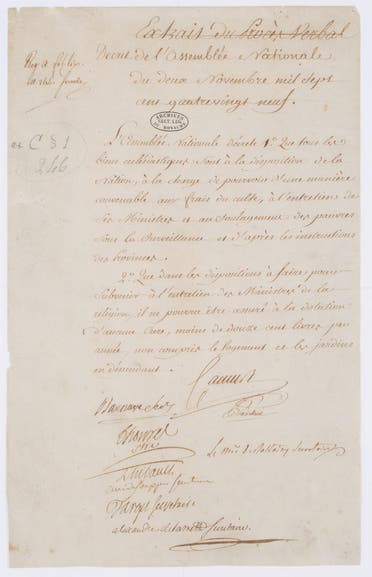 Extrait du Procès Verbal
Decret de l'Assemblée Nationale
du deux Novembre mil sept
cent quatrevingt neuf.
ARCHIVES
SECT. LEG.
DU ROYAUME
C § I
246
L'Assemblée Nationale décrete 1.° Que tous les
biens ecclésiastiques sont à la disposition de la
Nation, à la charge de pourvoir d'une manière
convenable aux frais du culte, à l'entretien de
ses Ministres et au soulagement des pauvres
sous la surveillance et d'après les instructions
des Provinces.
2.° Que dans les dispositions à faire pour
subvenir à l'entretien des Ministres de la
religion, il ne pourra être assuré à la dotation
d'aucune Cure, moins de douze cent livres par
année, non compris le logement et les jardins
en dépendant.
Camus
Barnave
Thibault
Target
alexandre de lameth Secrétaire